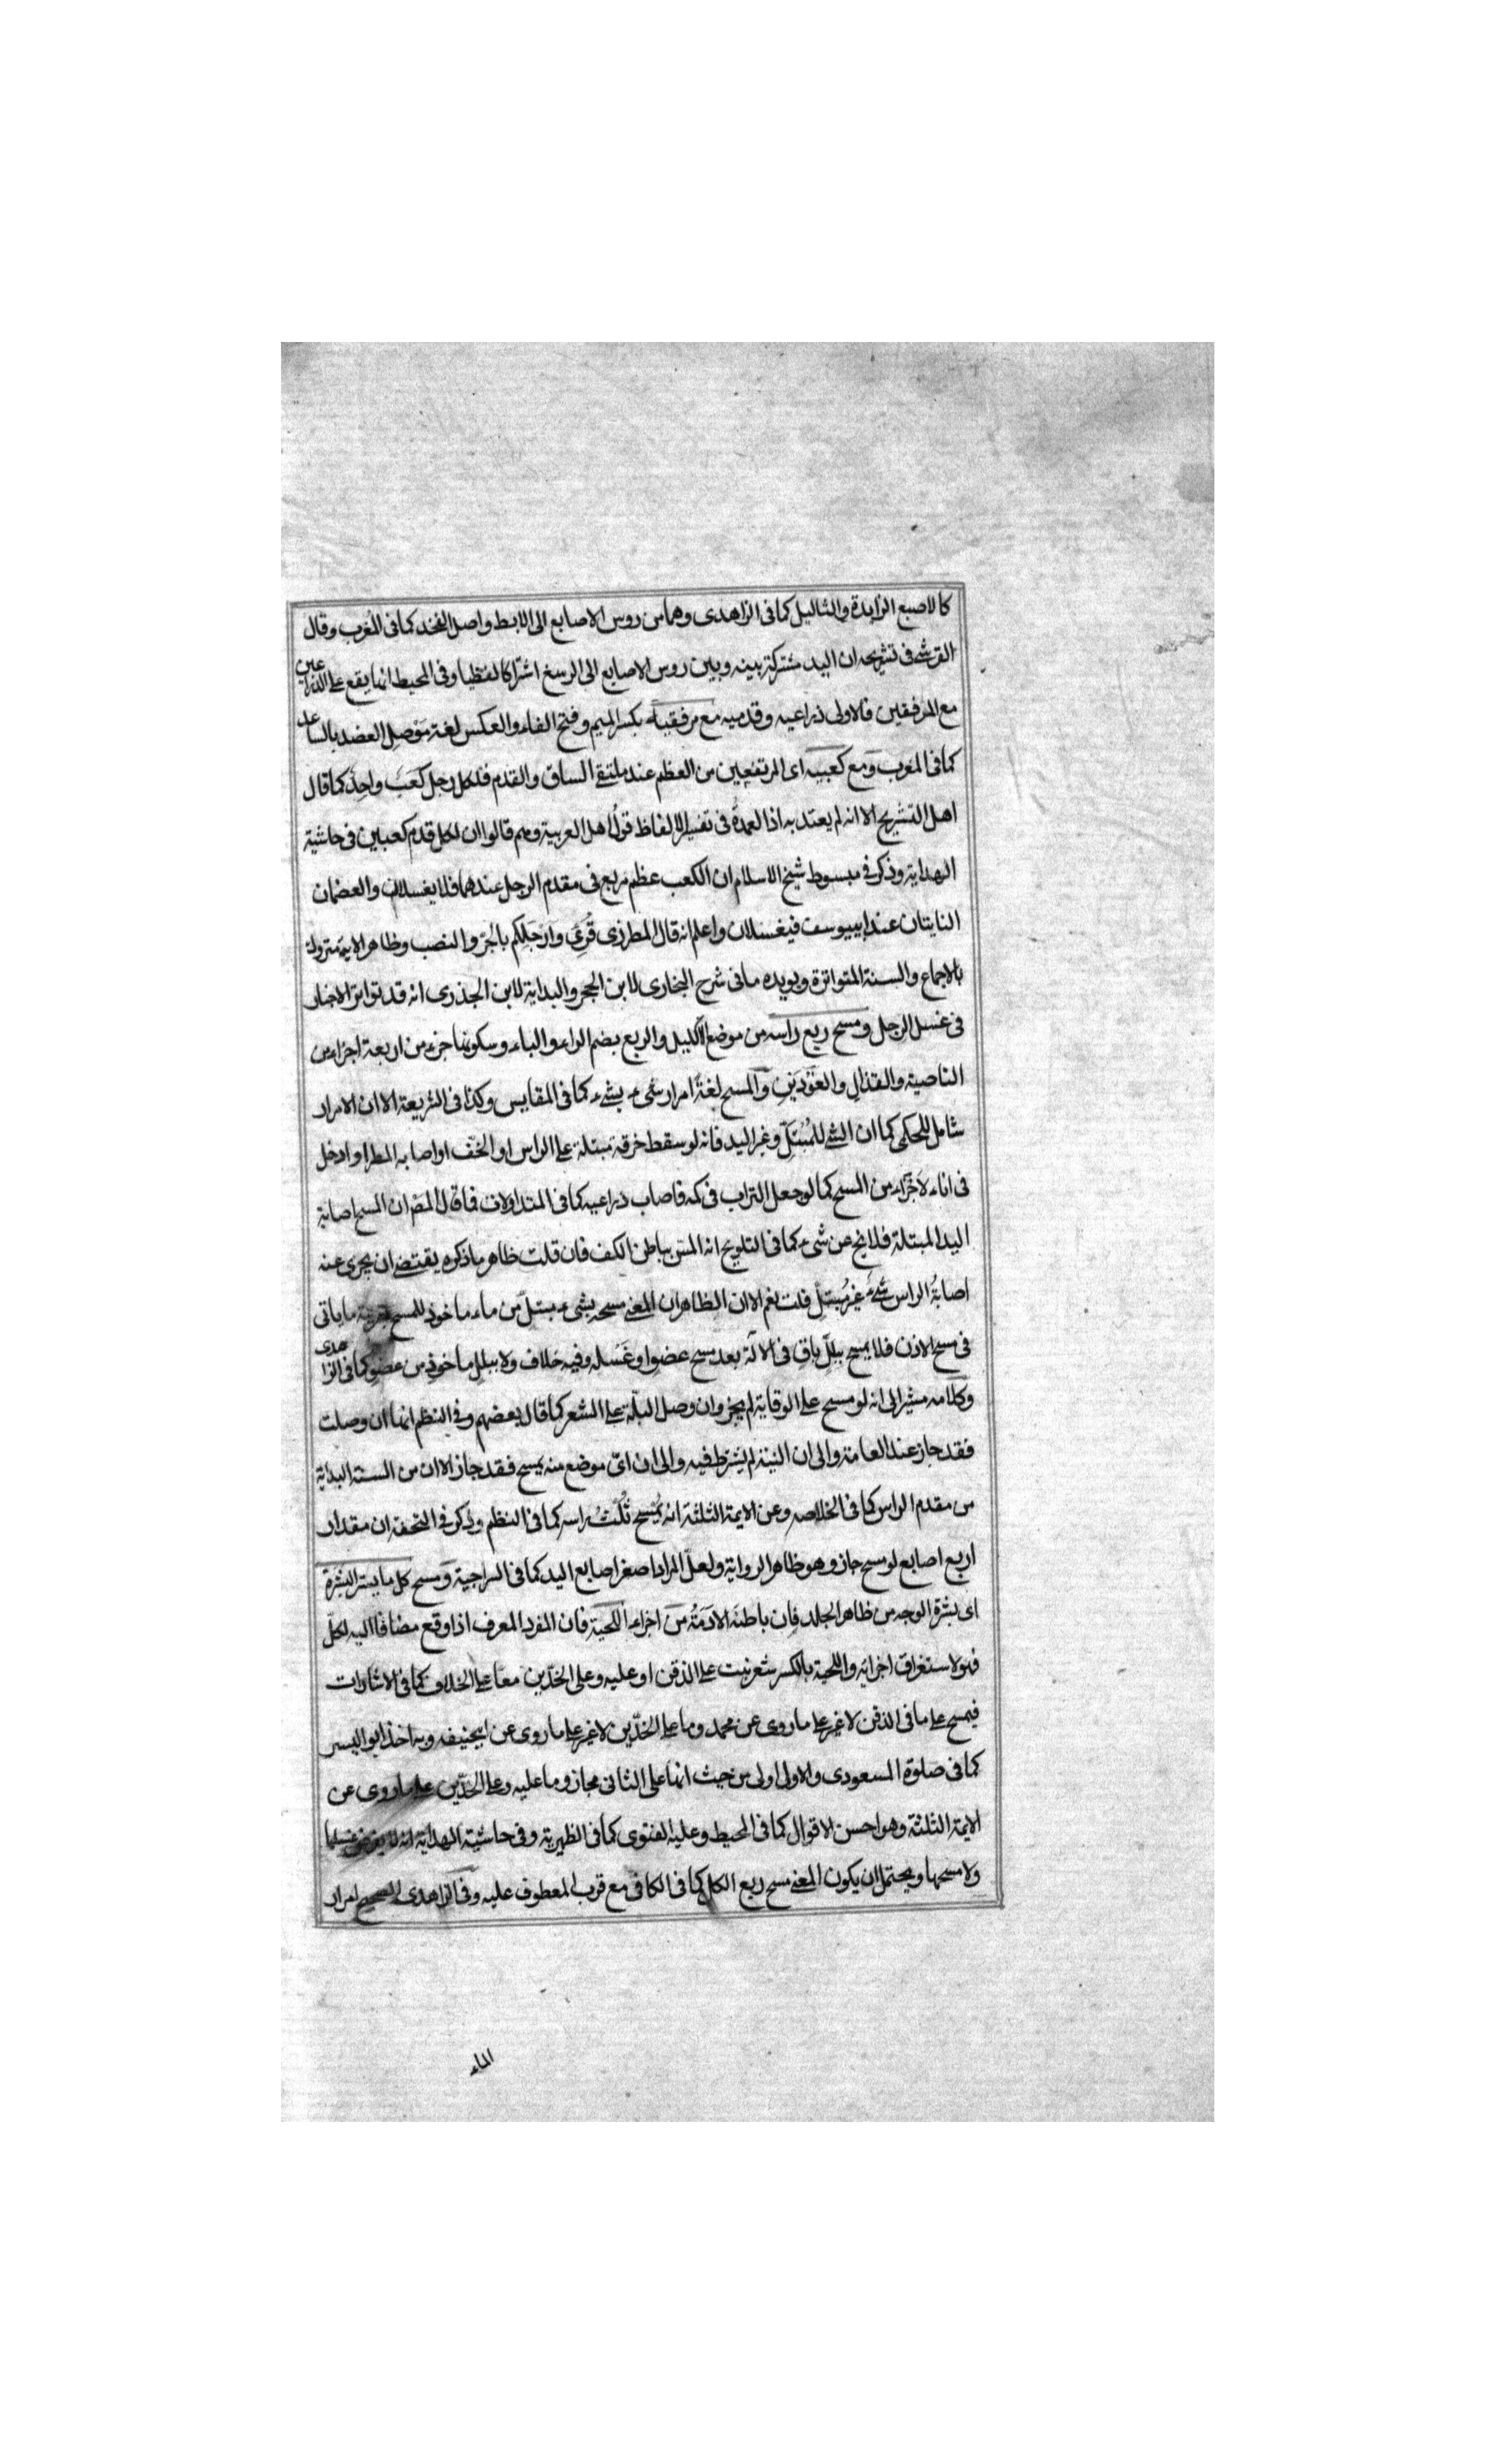 كالاصبع الزايدة والثاليل كما فى الزاهدى وهما من روس الاصابع الى الابط واصل الفخذ كما فى المغرب وقال
القرشى فى تشريحه ان اليد مشتركة بينه وبين روس الاصابع الى الرسغ اشتراكا لفظيا وفى المحيط انما يقع على الذراعين
مع المرفقين فالاولى ذراعيه وقدميه مع مرفقيه بكسر الميم وفتح الفاء والعكس لغة موصل العضد بالساعد
كما فى المغرب ومع كعبيه اى المرتفعين من العظم عند ملتقى الساق والقدم فلكل رجل كعب واحد كما قال
اهل التشريح الا انه لم يعتد به اذ العمدة فى تفسير الالفاظ قول اهل العربية وهم قالوا ان لكل قدم كعبين فى حاشية
الهداية وذكر فى مبسوط شيخ الاسلام ان الكعب عظم مربع فى مقدم الرجل عندهما فلا يغسلان والعضمان
الناتيان عند ابييوسف فيغسلان واعلم انه قال المطرزى قُرِئَ وَاَرْجُلِكُم بالجرّ والنصب وظاهر الاية متروك
بالاجماع والسنة المتواترة ويويده ما فى شرح البخارى لابن الحجر والبداية لابن الجذرى انه قد تواتر الاخبار
فى غسل الرجل ومسح ربع راسه من موضع الاكليل والربع بضم الراء والباء وسكونها جزء من اربعة اجزاء من
الناصية والقذال والفَوْدَيْنِ وَالمسح لغةً امرار شىء بشىء كما فى المقايس وكذا فى الشريعة الا ان الامرار
شامل للحكمى كما ان الشى للمُبْتَلّ وغير اليد فانه لو سقط خرقة مبتلة على الراس او الخفّ او اصابه المطر او ادخل
فى اناء لاجزاء من المسح كما لو جعل التراب فى كمه فاصاب ذراعيه كما فى المتداولات فما قال المص ان المسح اصابة
اليد المبتلة فلا يخ عن شىء كما فى التلويح انه المسّ بباطن الكف فان قلت ظاهر ما ذكره يقتضى ان يجرى عنه
اصابةُ الراس شىءٌ غيرُ مبتلّ قلت نعم الا ان الظاهر ان المعنى مسحه بشىء مبتلّ من ماء ماخوذ للمسح بقرينة ما ياتى
فى مسح الاذن فلا يمسح ببللٍ باقٍ فى الآلة بعد مسح عضو او غَسْله وفيه خلاف ولا ببلل ماخوذ من عضو كما فى الزاهدى
وكلامه مشير الى انه لو مسح على الوقاية لم يجز وان وصل البلّة على الشعر كما قال بعضهم وفى النظم انها ان وصلت
فقد جاز عند العامة والى ان النية لم يشترط فيه والى ان اىّ موضع منه يمسح فقد جاز الا ان من السنة البداية
من مقدم الراس كما فى الخلاصه وعن الايمة الثلثة انه يُمْسح ثُلُثُ راسه كما فى النظم وذكر فى التحفة ان مقدار
اربع اصابع لو مسح جاز وهو ظاهر الرواية ولعلّ المراد اصغر اصابع اليد كما فى السراجية ومسح كل ما يستر البشرة
اى بشرة الوجه من ظاهر الجلد فان باطنَه الادَمَةُ من اجزاء اللحية فان المفرد المعرف اذا وقع مضافا اليه لكلّ
فهو لاستغراق اجزائه واللحية بالكسر شعر نبت على الذقن او عليه وعلى الخدّين معًا على الخلاف كما فى الاشارات
فيمسح على ما فى الذقن لا غير على ما روى عن محمد وما على الخدّين لا غير على ما روى عن ابيحنيفه وبه اخذ ابو اليسر
كما فى صلوة المسعودى والاولى اولى من حيث انها على الثانى مجاز وما عليه وعلى الخدّين على ما روى عن
الايمة الثلثة وهو احسن الاقوال كما فى المحيط وعليه الفتوى كما فى الظهيرية وفى حاشية الهداية انه لا يفرض غسلها
ولا مسحها ويحتمل ان يكون المعنى مسح ربع الكل كما فى الكافى مع قرب المعطوف عليه وفى الزاهدى الصحيح امرار
الماء